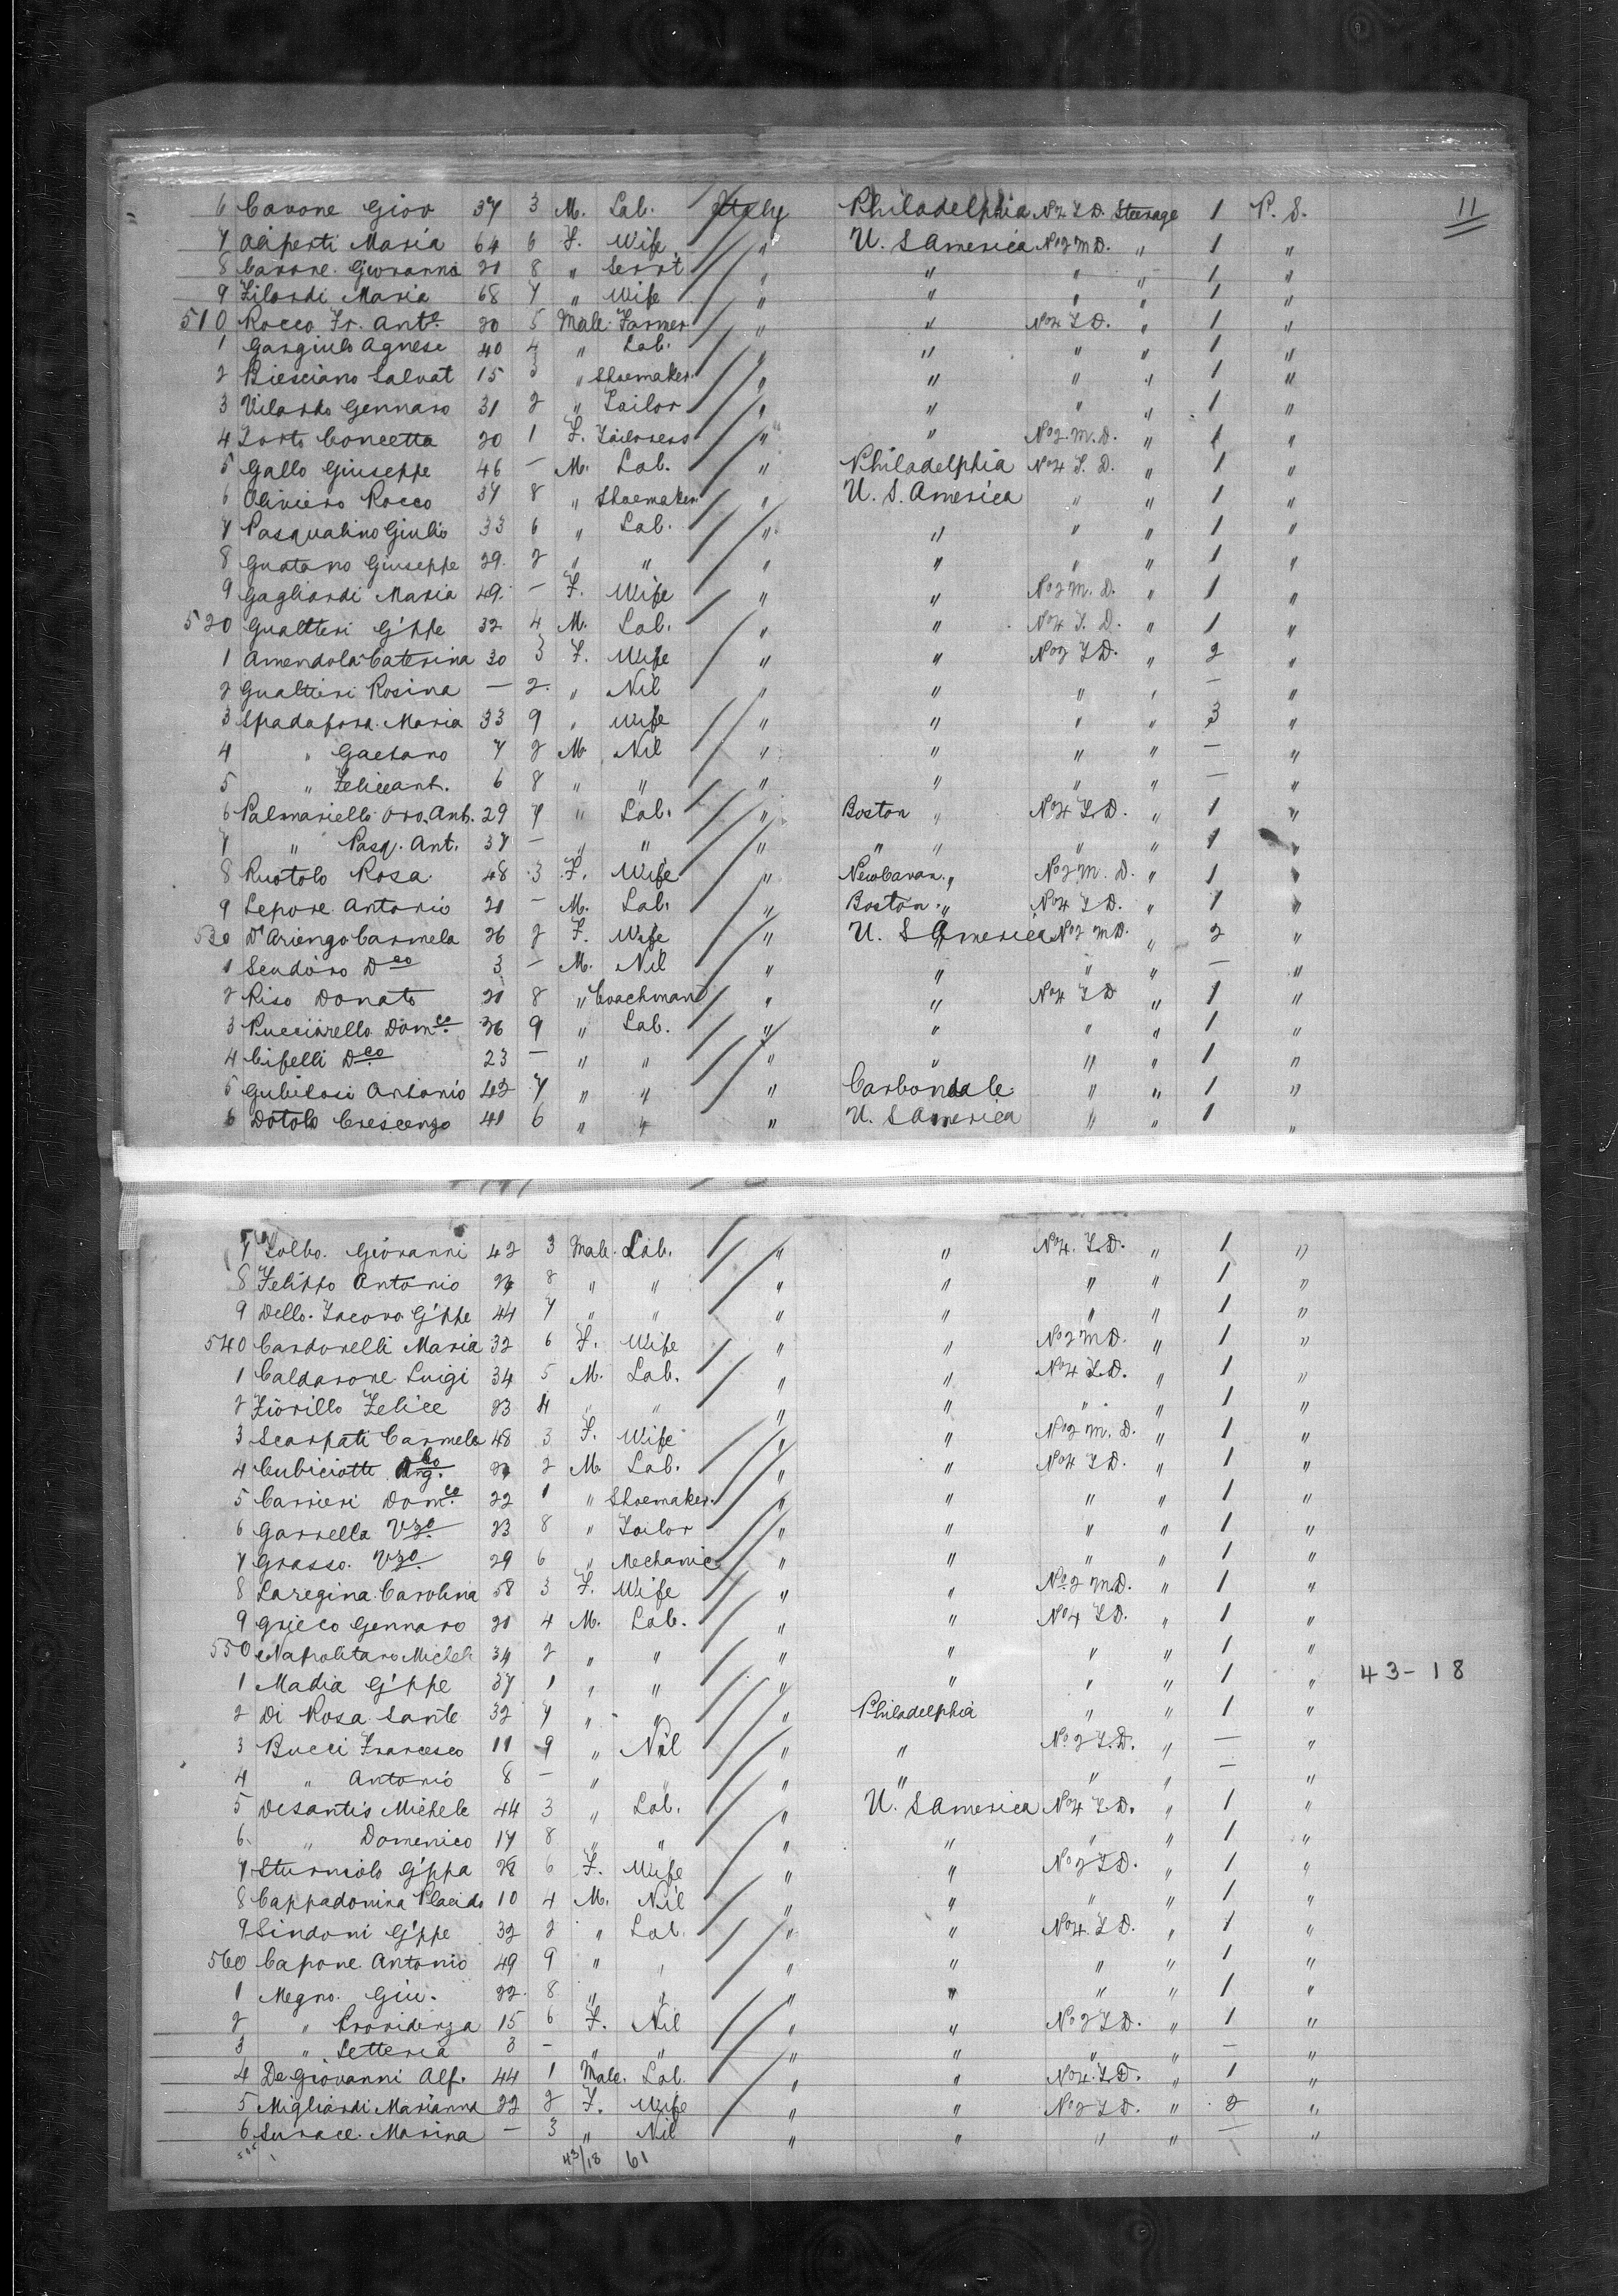 11
6 Cavone Giov 37 3 M. Lab. Italy Philadelphia No 4 L D. Steerage 1 P. S.
7 Aliperti Maria 64 6 F. Wife " U. S America No 2 M D. " 1 "
8 Carone Giovanna 21 8 " Serv't " " " " 1 "
9 Filardi Maria 68 7 " Wife " " " " 1 "
510 Rocco Fr. Anto. 20 5 Male Farmer " " No 4 L D. " 1 "
1 Gargiulo Agnese 40 4 " Lab. " " " " 1 "
2 Biesciano Salvat 15 3 " Shoemaker " " " " 1 "
3 Vilardo Gennaro 31 2 " Tailor " " " " 1 "
4 Forte Concetta 20 1 F. Tailoress " " No 2. M. D. " 1 "
5 Gallo Giuseppe 46 — M. Lab. " Philadelphia No 4 L. D. " 1 "
6 Oliviero Rocco 37 8 " Shoemaker " U. S. America " " 1 "
7 Pasqualino Giulio 33 6 " Lab. " " " " 1 "
8 Guatano Giuseppe 29. 2 " " " " " " 1 "
9 Gagliardi Maria 49. — F. Wife " " No 2 M. D. " 1 "
520 Gualtieri G'ppe 32 4 M. Lab. " " No 4 L. D. " 1 "
1 Amendola Caterina 30 3 F. Wife " " No 2 L D. " 2 "
2 Gualtieri Rosina — 2. " Nil " " " " — "
3 Spadafora Maria 33 9 " Wife " " " " 3 "
4 " Gaetano 7 2 M Nil " " " " — "
5 " Feliceant. 6 8 " " " " " " — "
6 Palmariello Oro. Ant. 29 7 " Lab. " Boston " No 4 L. D. " 1 "
7 " Pasq. Ant. 37 — " " " " " " " 1 "
8 Ruotolo Rosa 48 3 F. Wife " " No 2 M. D. " 1 "
9 Lepore Antonio 21 — M. Lab. " Boston " No 4 L D. " 1 "
530 D'Ariengo Carmela 26 2 F. Wife " U. S America No 2 M D. " 2 "
1 Dco 3 — M. Nil " " " " — "
2 Riso Donato 21 8 " Coachman " " No 4 L D " 1 "
3 Pucciarello Domco. 36 9 " Lab. " " " " 1 "
4 Cifelli Dco 23 — " " " " " " 1 "
5 Gubitosi Antonio 42 7 " " " Carbondale " " 1 "
6 Dotolo Crescenzo 41 6 " " " U. S America " " 1 "
7 Giovanni 42 3 Male. Lab. " " No 4. L. D. " 1 "
8 Felippo Antonio 26 8 " " " " " " 1 "
9 Dello Iacovo G'ppe 44 7 " " " " " " 1 "
540 Cardorelli Maria 32 6 F. Wife " " No 2 M D. " 1 "
1 Caldarone Luigi 34 5 M. Lab. " " No 4 L. D. " 1 "
2 Fiorillo Felice 23 4 " " " " " " 1 "
3 Scarpati Carmela 48 3 F. Wife " " No 2 M. D. " 1 "
4 Cubiciotti 2 M. Lab. " " No 4 L D. " 1 "
5 Carrieri Domco. 22 1 " Shoemaker. " " " " 1 "
6 Garrella Vzo. 23 8 " Tailor " " " " 1 "
7 Grasso. Vzo. 29 6 " Mechanic " " " " 1 "
8 Laregina Carolina 58 3 F. Wife " " No 2 M. D. " 1 "
9 Grieco Gennaro 21 4 M. Lab. " " No 4 L D. " 1 "
550 Napolitano Michele 34 2 " " " " " " 1 "
1 Madia G'ppe 37 1 " " " " " " 1 " 43-18
2 Di Rosa Sante 32 7 " " " Philadelphia " " 1 "
3 Bucci Francesco 11 9 " Nil " " No 2 L. D. " — "
4 " Antonio 8 — " " " " " " — "
5 Desantis Michele 44 3 " Lab. " U. S America No 4 L. D. " 1 "
6. " Domenico 17 8 " " " " " " 1 "
7 Sturniolo G'ppa 28 6 F. Wife " " No 2 L D. " 1 "
8 Cappadonina Placido 10 4 M. Nil " " " " 1 "
9 Sindoni G'ppe 32 2 " Lab. " " No 4. L D. " 1 "
560 Capone Antonio 49 9 " " " " " " 1 "
1 Megno. Giu. 22. 8 " " " " " " 1 "
2 " Providenza 15 6 F. Nil " " No 2 L D. " 1 "
3 " Letteria 3 — " " " " " " — "
4 De Giovanni Alf. 44 1 Male. Lab. " " No 4. L. D. " 1 "
5 Migliardi Marianna 22 2 F. Wife " " No 2 L D. " 2 "
6 Surace Marina — 3 " Nil " " " " — "
43/18 61